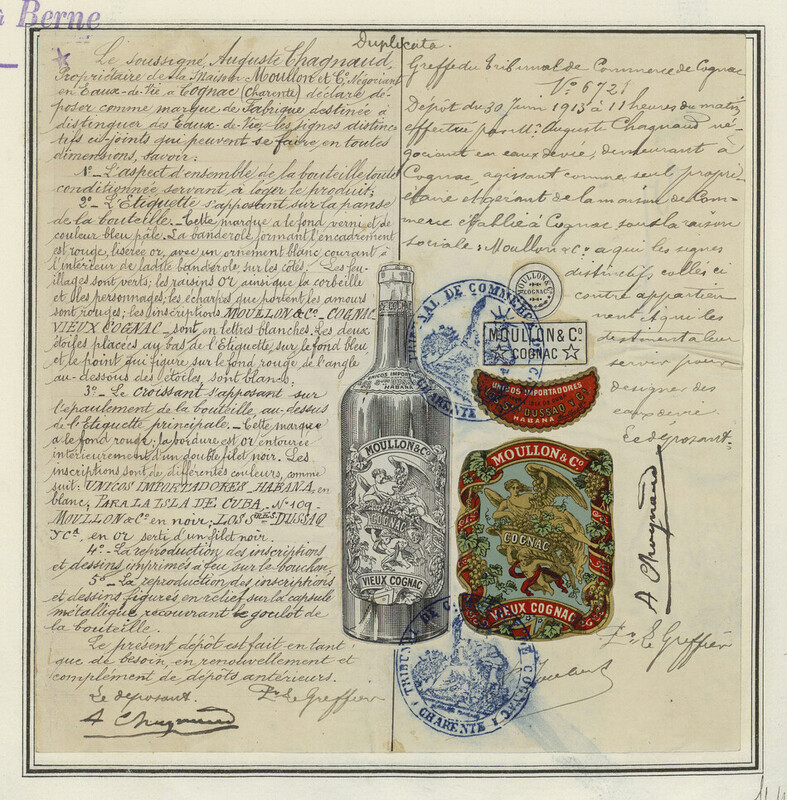 à Berne
Duplicata.
Le soussigné, Auguste Chagnaud,
Propriétaire de la Maison Moullon et Cº Négociant
en Eaux-de-Vie à Cognac (Charente) déclare dé-
poser comme marque de Fabrique destinée à
distinguer des Eaux-de-Vie, les signes distinc-
tifs ci-joints qui peuvent se faire, en toutes
dimensions, savoir:
1º_ L'aspect d'ensemble de la bouteille toute
conditionnée, servant à loger le produit;
2º_ L'Étiquette s'apposant sur la panse
de la bouteille._ Cette marque a le fond verni et de
couleur bleu pâle. La banderole formant l'encadrement
est rouge, liserée or, avec un ornement blanc courant à
l'intérieur de ladite banderole, sur les côtés. Les feu-
illages sont verts; les raisins or ainsi que la corbeille
et les personnages; les écharpes que portent les amours
sont rouges; les inscriptions MOULLON & Cº_ COGNAC_
VIEUX COGNAC_ sont en lettres blanches. Les deux
étoiles placées au bas de l'Etiquette, sur le fond bleu
et le point qui figure sur le fond rouge de l'angle
au-dessous des étoiles, sont blancs;
3º_ Le Croissant s'apposant sur
l'épaulement de la bouteille, au-dessus
de l'Etiquette principale._ Cette marque
a le fond rouge, la bordure est or entourée
intérieurement d'un double filet noir. Les
inscriptions sont de différentes couleurs, comme
suit: UNICOS IMPORTADORES_HABANA, en
blanc, PARA LA ISLA DE CUBA_ Nº 109_
MOULLON & Cº en noir, LOS Sres DUSSAQ
Y Cª, en or serti d'un filet noir.
4º_ La reproduction des inscriptions
et dessins imprimés à feu sur le bouchon.
5º_ La reproduction des inscriptions
et dessins figurés en relief sur la capsule
métallique recouvrant le goulot de
la bouteille.
Le présent dépôt est fait en tant
que de besoin, en renouvellement et
complément de dépôts antérieurs.
Le déposant. Pr Le Greffier
A Chagnaud
Greffe du Tribunal de Commerce de Cognac
Nº 6721
Dépôt du 30 Juin 1913 à 11 heures du matin
effectué par Mr. Auguste Chagnaud né-
gociant en eaux de vie, demeurant à
Cognac, agissant comme seul proprié-
étaire et gérant de la maison de Com-
merce établie à Cognac sous la raison
sociale: Moullon & Cº a qui les signes
distinctifs, collés ci
contre appartien
nent et qui les
destinent a leur
servir pour
designer des
eaux de vie.
Le déposant.
A Chagnaud
Pr Le Greffier
MOULLON & Cº
COGNAC
MOULLON & Cº
COGNAC
UNICOS IMPORTADORES
DUSSAQ Y Cª
HABANA
MOULLON & Cº
COGNAC
VIEUX COGNAC
COGNAC
UNICOS IMPORTADORES
HABANA
MOULLON & Cº
COGNAC
VIEUX COGNAC
TRIBUNAL DE COMMERCE
CHARENTE
TRIBUNAL DE COMMERCE DE COGNAC
CHARENTE